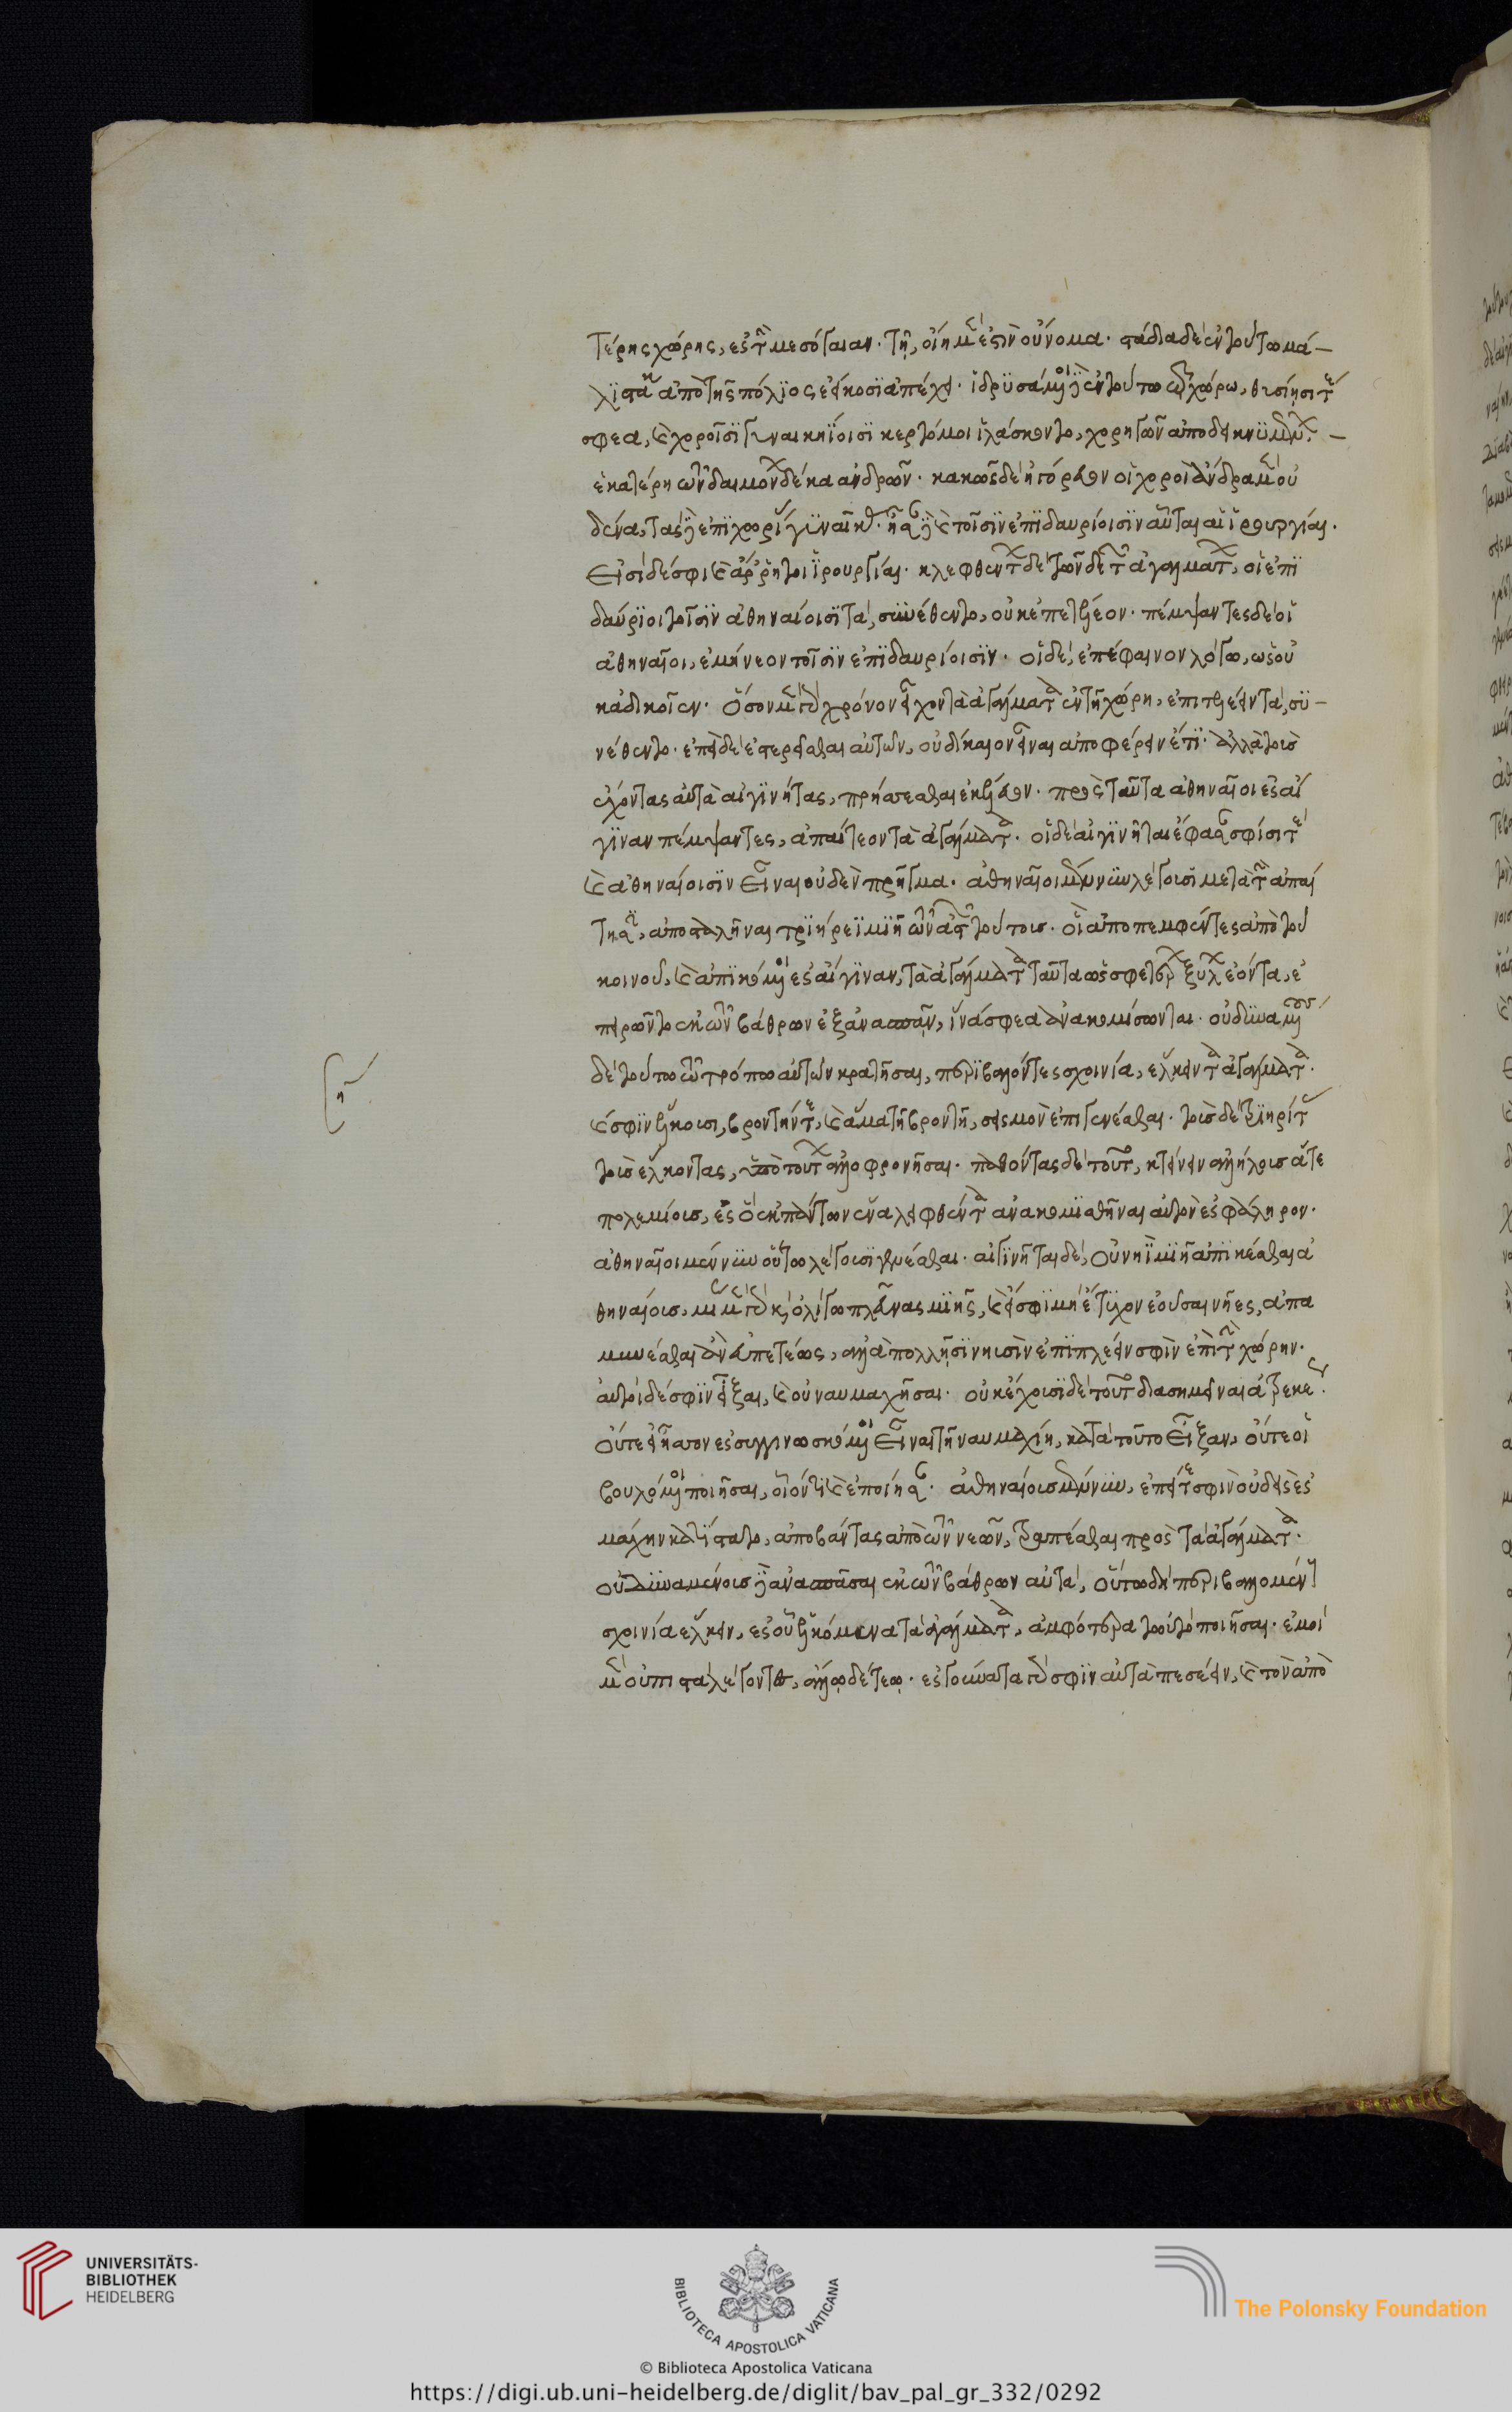 τέρης χώρης, ἐς τὴν μεσόγαιαν. τῆ, οἴη μέν ἐστιν οὔνομα. στάδια δὲ ἐν τούτω μά-
λιστά κη ἀπὸ τῆς πόλιος εἴκοσι ἀπέχει. ἱδρυσάμενοι δὲ ἐν τούτω τῶ χώρω, θυσίησί τέ
σφεα, καὶ χοροῖσι γυναικηίοισι κερτόμοι ἱλάσκοντο, χορηγῶν ἀποδεικνυμένων. -
ἑκατέρη τῶν δαιμόνων δέκα ἀνδρῶν. κακῶς δὲ ἠγόρευον οἱ χοροὶ ἄνδρα μὲν οὐ
δένα, τὰς δὲ ἐπιχωρίας γυναῖκας. ἦσαν δὲ καὶ τοῖσιν ἐπιδαυρίοισιν αὗται αἱ ἱρουργίαι.
Εἰσὶ δέ σφι καὶ ἄρρητοι ἱρουργίαι. κλεφθέντων δὲ τῶνδε τῶν ἀγαλμάτων, οἱ ἐπι
δαύριοι τοῖσιν ἀθηναίοισι τὰ, συνέθεντο, οὐκ ἐπετέλεον. πέμψαντες δὲ οἱ
ἀθηναῖοι, ἐμήνεον τοῖσιν ἐπιδαυρίοισιν. οἱ δὲ, ἐπέφαινον λόγω, ὡς οὐ
κ ἀδικοῖεν. ὅσον μὲν γὰρ χρόνον εἶχον τὰ ἀγάλματα ἐν τῆ χώρη, ἐπιτελέειν τὰ, συ-
νέθεντο. ἐπεὶ δὲ ἐστερεῖσθαι αὐτῶν, οὐ δίκαιον εἶναι ἀποφέρειν ἔτι. ἀλλὰ τοὺς
ἔχοντας αὐτὰ αἰγινήτας, πρήσσεσθαι ἐκέλευον. πρὸς ταῦτα ἀθηναῖοι ἐς αἴ
γιναν πέμψαντες, ἀπαίτεον τὰ ἀγάλματα. οἱ δὲ αἰγινῆται ἔφασαν σφίσι τὲ
καὶ ἀθηναίοισιν Εἶναι οὐδὲν πρῆγμα. ἀθηναῖοι μέν νυν λέγουσι μετὰ τὴν ἀπαί
τησιν, ἀποσταλῆναι τριήρεϊ μιῆ τῶν ἀστῶν τούτους. οἳ ἀποπεμφθέντες ἀπὸ τοῦ
κοινοῦ, καὶ ἀπικόμενοι ἐς αἴγιναν, τὰ ἀγάλματα ταῦτα ὡς σφετέρων ξύλων ἐόντα, ἐ
πειρῶντο ἐκ τῶν βάθρων ἐξανασπᾶν, ἵνα σφεα ἀνακομίσωνται. οὐ δυναμένους
δὲ τούτω τῶ τρόπω αὐτῶν κρατῆσαι, περιβαλόντες σχοινία, ἕλκειν τὰ ἀγάλματα.
καί σφιν ἕλκουσι, βροντήν τε, καὶ ἅμα τῆ βροντῆ, σεισμὸν ἐπιγενέσθαι. τοὺς δὲ τριηρίτας
τοὺς ἕλκοντας, ὑπὸ τούτων ἀλλοφρονῆσαι. παθόντας δὲ τοῦτο, κτείνειν ἀλλήλους ἅτε
πολεμίους, ἐς ὃ ἐκ πάντων ἕνα λειφθέντα ἀνακομισθῆναι αὐτὸν ἐς φάληρον.
ἀθηναῖοι μέν νυν οὕτω λέγουσι γενέσθαι. αἰγινῆται δὲ, οὐ νηῒ μιῆ ἀπικέσθαι ἀ
θηναίους, μίαν μὲν γὰρ καὶ ὀλίγω πλεῦνας μιῆς, καὶ εἴ σφι μὴ ἔτυχον ἐοῦσαι νῆες, ἀπα
μυνέσθαι ἂν εὐπετέως, ἀλλὰ πολλῆσι νηυσὶν ἐπιπλέειν σφὶν ἐπὶ τὴν χώρην.
αὐτοὶ δέ σφιν εἶξαι, καὶ οὐ ναυμαχῆσαι. οὐκ ἔχουσι δὲ τοῦτο διασημῆναι ἀτρεκέως.
οὔτε εἰ ἥσσονες συγγινωσκόμενοι Εἶναι τῆ ναυμαχίη, κατὰ τοῦτο Εἶξαν, οὔτε εἰ
βουλόμενοι ποιῆσαι, οἷόν τι καὶ ἐποίησαν. ἀθηναίους μέν νυν, ἐπεί τέ σφιν οὐδεὶς ἐς
μάχην κατίστατο, ἀποβάντας ἀπὸ τῶν νεῶν, τραπέσθαι πρὸς τὰ ἀγάλματα.
οὐ δυναμένους δὲ ἀνασπᾶσαι ἐκ τῶν βάθρων αὐτὰ, οὕτω δὴ περιβαλομένους
σχοινία ἕλκειν, ἐς οὗ ἑλκόμενα τὰ ἀγάλματα, ἀμφότερα τωυτὸ ποιῆσαι. ἐμοὶ
μὲν οὐ πιστὰ λέγοντες, ἄλλω δέ τεω. ἐς γούνατα γὰρ σφιν αὐτὰ πεσέειν, καὶ τὸν ἀπὸ
UNIVERSITÄTS-
BIBLIOTHEK
HEIDELBERG
BIBLIOTECA APOSTOLICA VATICANA
The Polonsky Foundation
© Biblioteca Apostolica Vaticana
https://digi.ub.uni-heidelberg.de/diglit/bav_pal_gr_332/0292